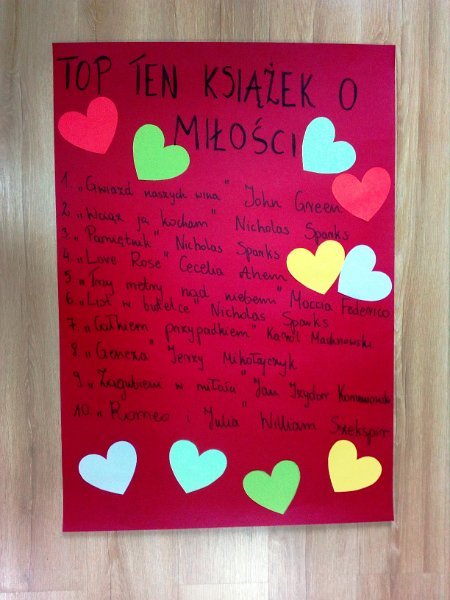 TOP TEN KSIĄŻEK O
MIŁOŚCI
1. „Gwiazd naszych wina" John Green
2. „Wciąż ją kocham" Nicholas Sparks
3. „Pamiętnik" Nicholas Sparks
4. „Love Rose" Cecelia Ahern
5. „Trzy metry nad niebem" Moccia Federico
6. „List w butelce" Nicholas Sparks
7. „Całkiem przypadkiem" Karol
8. „Geneza" Jerzy Mikołajczyk
9. „Zagubieni w miłości" Jan Izydor
10. „Romeo i Julia" William Szekspir